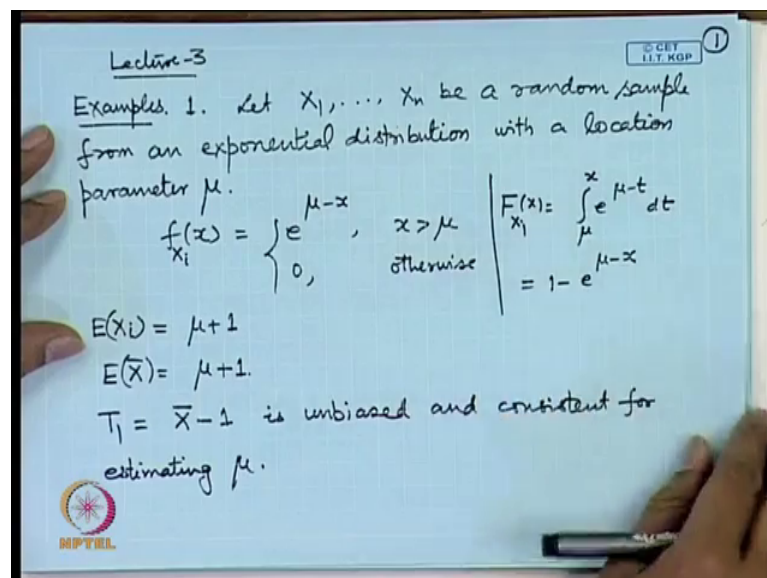 Lecture-3
© CET
I.I.T. KGP
1
Examples. 1. Let X₁, ..., Xₙ be a random sample
from an exponential distribution with a location
parameter μ.
f_{Xᵢ}(x) = { e^{μ-x}, x > μ
0, otherwise
F_{X₁}(x) = ∫_μ^x e^{μ-t} dt
= 1 - e^{μ-x}
E(Xᵢ) = μ+1
E(X̄) = μ+1.
T₁ = X̄ - 1 is unbiased and consistent for
estimating μ.
NPTEL